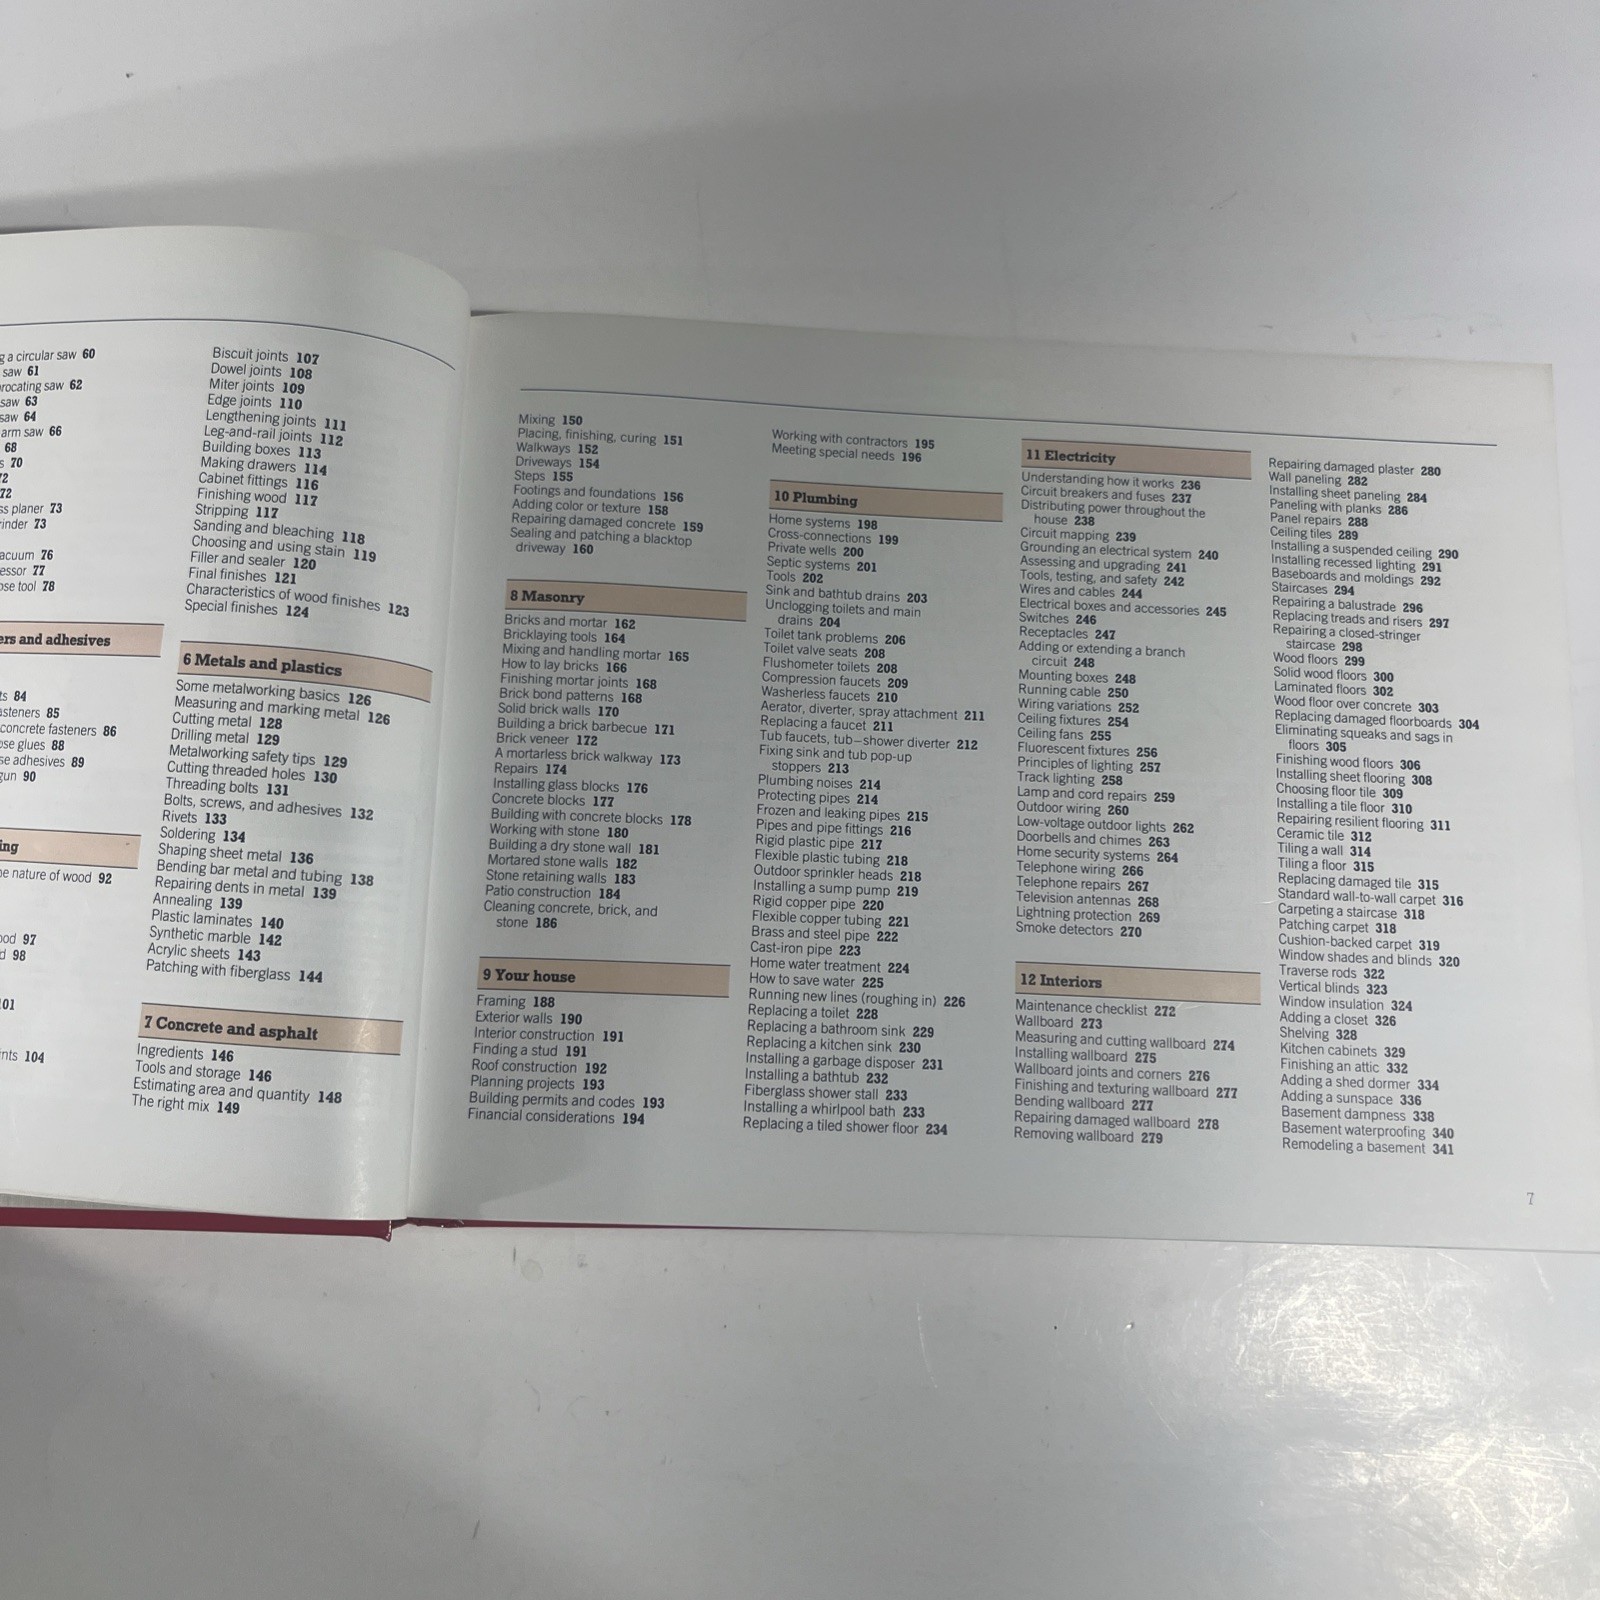 g a circular saw 60
saw 61
rocating saw 62
saw 63
saw 64
arm saw 66
68
s 70
72
72
ss planer 73
rinder 73
acuum 76
essor 77
ose tool 78
ers and adhesives
ts 84
asteners 85
concrete fasteners 86
ose glues 88
se adhesives 89
gun 90
ing
he nature of wood 92
ood 97
d 98
101
ints 104
Biscuit joints 107
Dowel joints 108
Miter joints 109
Edge joints 110
Lengthening joints 111
Leg-and-rail joints 112
Building boxes 113
Making drawers 114
Cabinet fittings 116
Finishing wood 117
Stripping 117
Sanding and bleaching 118
Choosing and using stain 119
Filler and sealer 120
Final finishes 121
Characteristics of wood finishes 123
Special finishes 124
6 Metals and plastics
Some metalworking basics 126
Measuring and marking metal 126
Cutting metal 128
Drilling metal 129
Metalworking safety tips 129
Cutting threaded holes 130
Threading bolts 131
Bolts, screws, and adhesives 132
Rivets 133
Soldering 134
Shaping sheet metal 136
Bending bar metal and tubing 138
Repairing dents in metal 139
Annealing 139
Plastic laminates 140
Synthetic marble 142
Acrylic sheets 143
Patching with fiberglass 144
7 Concrete and asphalt
Ingredients 146
Tools and storage 146
Estimating area and quantity 148
The right mix 149
Mixing 150
Placing, finishing, curing 151
Walkways 152
Driveways 154
Steps 155
Footings and foundations 156
Adding color or texture 158
Repairing damaged concrete 159
Sealing and patching a blacktop
driveway 160
8 Masonry
Bricks and mortar 162
Bricklaying tools 164
Mixing and handling mortar 165
How to lay bricks 166
Finishing mortar joints 168
Brick bond patterns 168
Solid brick walls 170
Building a brick barbecue 171
Brick veneer 172
A mortarless brick walkway 173
Repairs 174
Installing glass blocks 176
Concrete blocks 177
Building with concrete blocks 178
Working with stone 180
Building a dry stone wall 181
Mortared stone walls 182
Stone retaining walls 183
Patio construction 184
Cleaning concrete, brick, and
stone 186
9 Your house
Framing 188
Exterior walls 190
Interior construction 191
Finding a stud 191
Roof construction 192
Planning projects 193
Building permits and codes 193
Financial considerations 194
Working with contractors 195
Meeting special needs 196
10 Plumbing
Home systems 198
Cross-connections 199
Private wells 200
Septic systems 201
Tools 202
Sink and bathtub drains 203
Unclogging toilets and main
drains 204
Toilet tank problems 206
Toilet valve seats 208
Flushometer toilets 208
Compression faucets 209
Washerless faucets 210
Aerator, diverter, spray attachment 211
Replacing a faucet 211
Tub faucets, tub–shower diverter 212
Fixing sink and tub pop-up
stoppers 213
Plumbing noises 214
Protecting pipes 214
Frozen and leaking pipes 215
Pipes and pipe fittings 216
Rigid plastic pipe 217
Flexible plastic tubing 218
Outdoor sprinkler heads 218
Installing a sump pump 219
Rigid copper pipe 220
Flexible copper tubing 221
Brass and steel pipe 222
Cast-iron pipe 223
Home water treatment 224
How to save water 225
Running new lines (roughing in) 226
Replacing a toilet 228
Replacing a bathroom sink 229
Replacing a kitchen sink 230
Installing a garbage disposer 231
Installing a bathtub 232
Fiberglass shower stall 233
Installing a whirlpool bath 233
Replacing a tiled shower floor 234
11 Electricity
Understanding how it works 236
Circuit breakers and fuses 237
Distributing power throughout the
house 238
Circuit mapping 239
Grounding an electrical system 240
Assessing and upgrading 241
Tools, testing, and safety 242
Wires and cables 244
Electrical boxes and accessories 245
Switches 246
Receptacles 247
Adding or extending a branch
circuit 248
Mounting boxes 248
Running cable 250
Wiring variations 252
Ceiling fixtures 254
Ceiling fans 255
Fluorescent fixtures 256
Principles of lighting 257
Track lighting 258
Lamp and cord repairs 259
Outdoor wiring 260
Low-voltage outdoor lights 262
Doorbells and chimes 263
Home security systems 264
Telephone wiring 266
Telephone repairs 267
Television antennas 268
Lightning protection 269
Smoke detectors 270
12 Interiors
Maintenance checklist 272
Wallboard 273
Measuring and cutting wallboard 274
Installing wallboard 275
Wallboard joints and corners 276
Finishing and texturing wallboard 277
Bending wallboard 277
Repairing damaged wallboard 278
Removing wallboard 279
Repairing damaged plaster 280
Wall paneling 282
Installing sheet paneling 284
Paneling with planks 286
Panel repairs 288
Ceiling tiles 289
Installing a suspended ceiling 290
Installing recessed lighting 291
Baseboards and moldings 292
Staircases 294
Repairing a balustrade 296
Replacing treads and risers 297
Repairing a closed-stringer
staircase 298
Wood floors 299
Solid wood floors 300
Laminated floors 302
Wood floor over concrete 303
Replacing damaged floorboards 304
Eliminating squeaks and sags in
floors 305
Finishing wood floors 306
Installing sheet flooring 308
Choosing floor tile 309
Installing a tile floor 310
Repairing resilient flooring 311
Ceramic tile 312
Tiling a wall 314
Tiling a floor 315
Replacing damaged tile 315
Standard wall-to-wall carpet 316
Carpeting a staircase 318
Patching carpet 318
Cushion-backed carpet 319
Window shades and blinds 320
Traverse rods 322
Vertical blinds 323
Window insulation 324
Adding a closet 326
Shelving 328
Kitchen cabinets 329
Finishing an attic 332
Adding a shed dormer 334
Adding a sunspace 336
Basement dampness 338
Basement waterproofing 340
Remodeling a basement 341
7